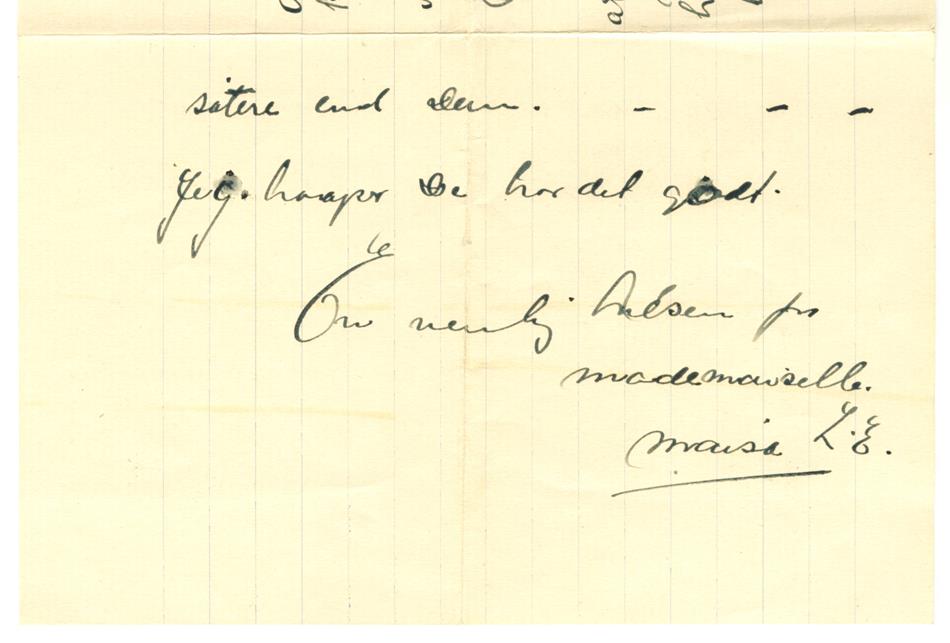 søtere end Dem. - - -
Jeg. haaper De har det godt.
En venlig hilsen fra
mademaiselle.
Maisa L.E.